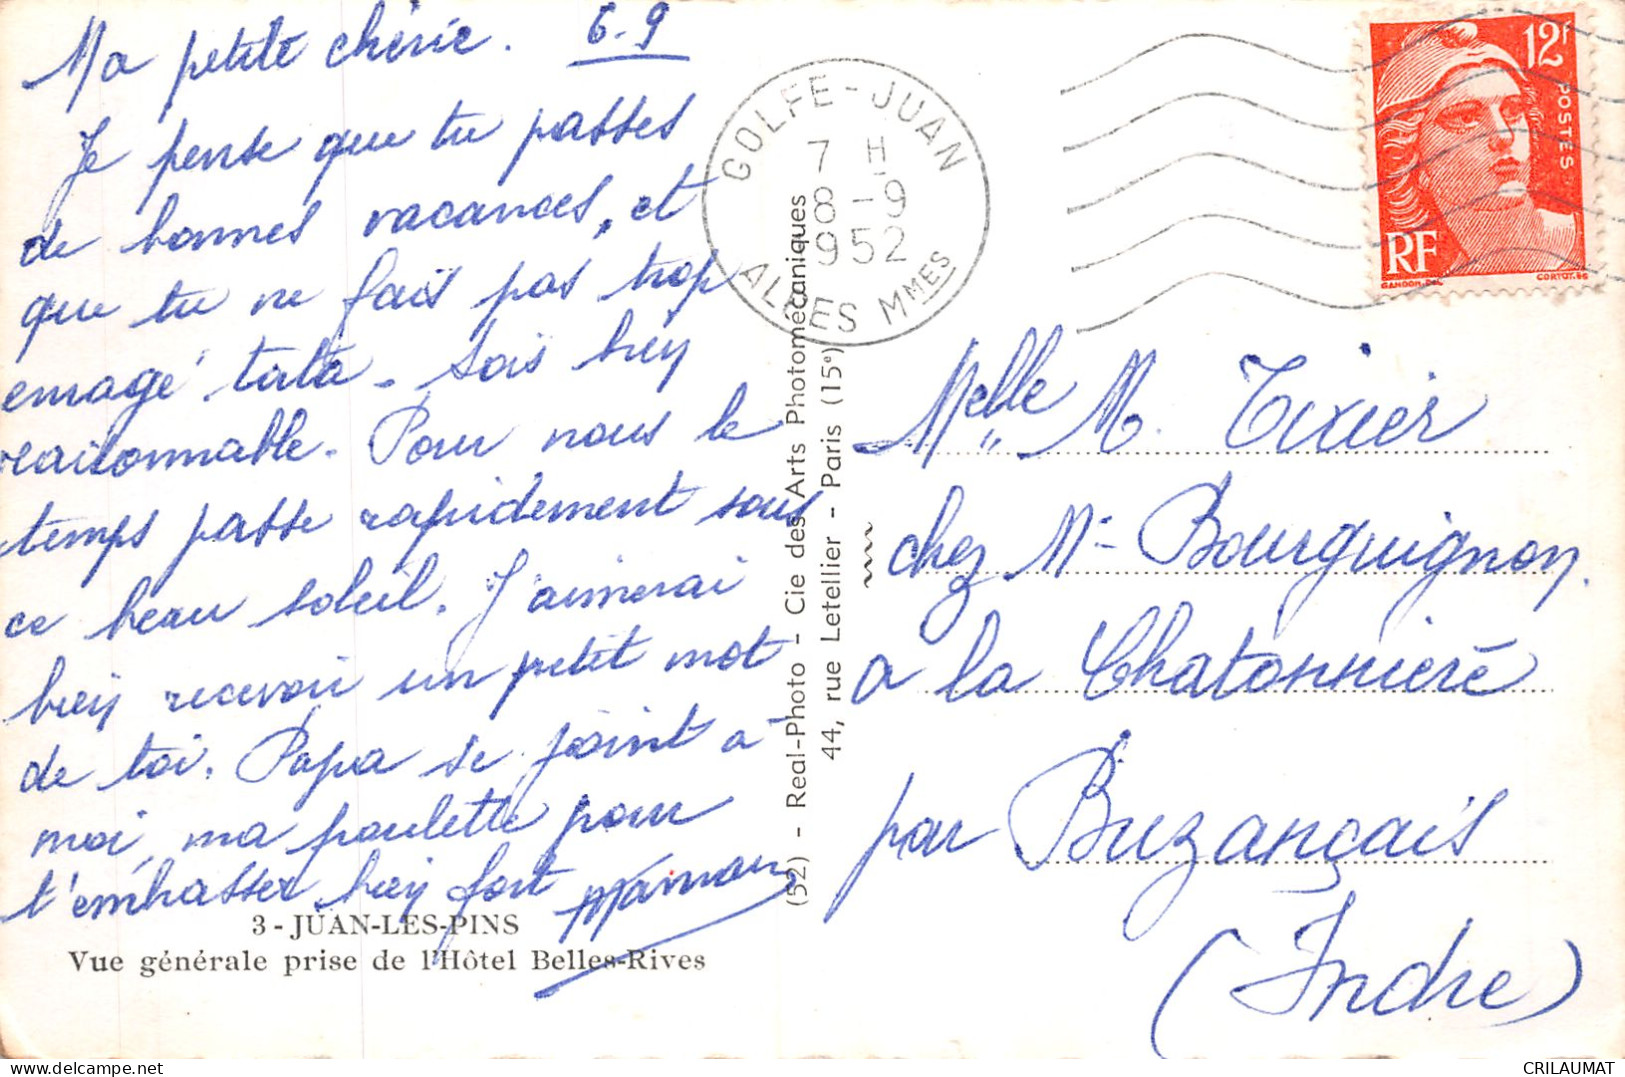 Ma petite chérie. 6-9
Je pense que tu passes
de bonnes vacances, et
que tu ne fais pas trop
enragé tata. Sois bien
raisonnable. Pour nous le
temps passe rapidement sous
ce beau soleil. J'aimerai
bien recevoir un petit mot
de toi. Papa se joint à
moi, ma poulette pour
t'embrasser bien fort Maman
3 - JUAN-LES-PINS
Vue générale prise de l'Hôtel Belles-Rives
(52) - Real-Photo - Cie des Arts Photomécaniques
44, rue Letellier - Paris (15e)
GOLFE-JUAN
7 H
8 - 9
1952
ALPES MMES
12F
POSTES
RF
GANDON.DEL
CORTOT.SC
Melle M. Tixier
chez Me Bourguignon.
a la Chatonnieré
par Buzançais
(Indre)
www.delcampe.net
CRILAUMAT